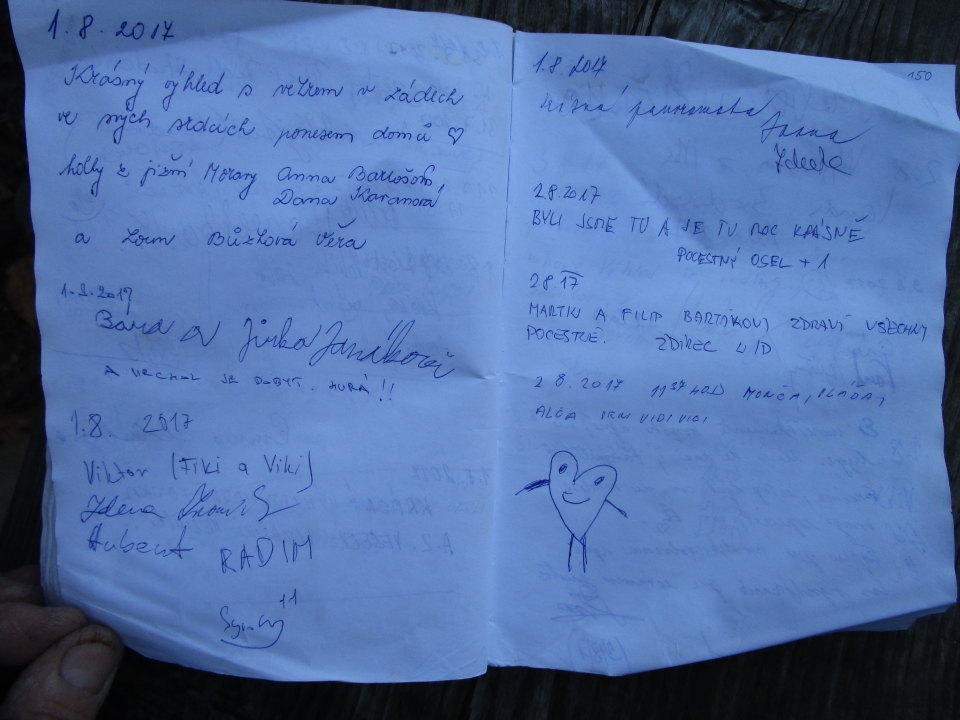 1.8.2017
Krásný výhled s větrem v zádech
ve svých srdcích ponesem domů ♡
holky z jižní Moravy Anna Bartošová
Dana Karanová
a Búzková Věra
1.8.2017
Bára a Jirka Janákovi
A VRCHOL JE DOBYT. HURÁ!!
1.8. 2017
Viktor (Fiki a Viki)
Zdena
Hubert RADIM
150
1.8.2017
panoramata Jana
Zdeňka
2.8.2017
BYLI JSME TU A JE TU MOC KRÁSNĚ
POCESTNÝ OSEL + 1
2 8 17
MARTIN A FILIP BARTÁKOVI ZDRAVÍ VŠECHNY
POCESTNÉ. ZDÍREC N/D
2 8. 2017 11 37 HOD MONČA,
ALČA VENI VIDI VICI